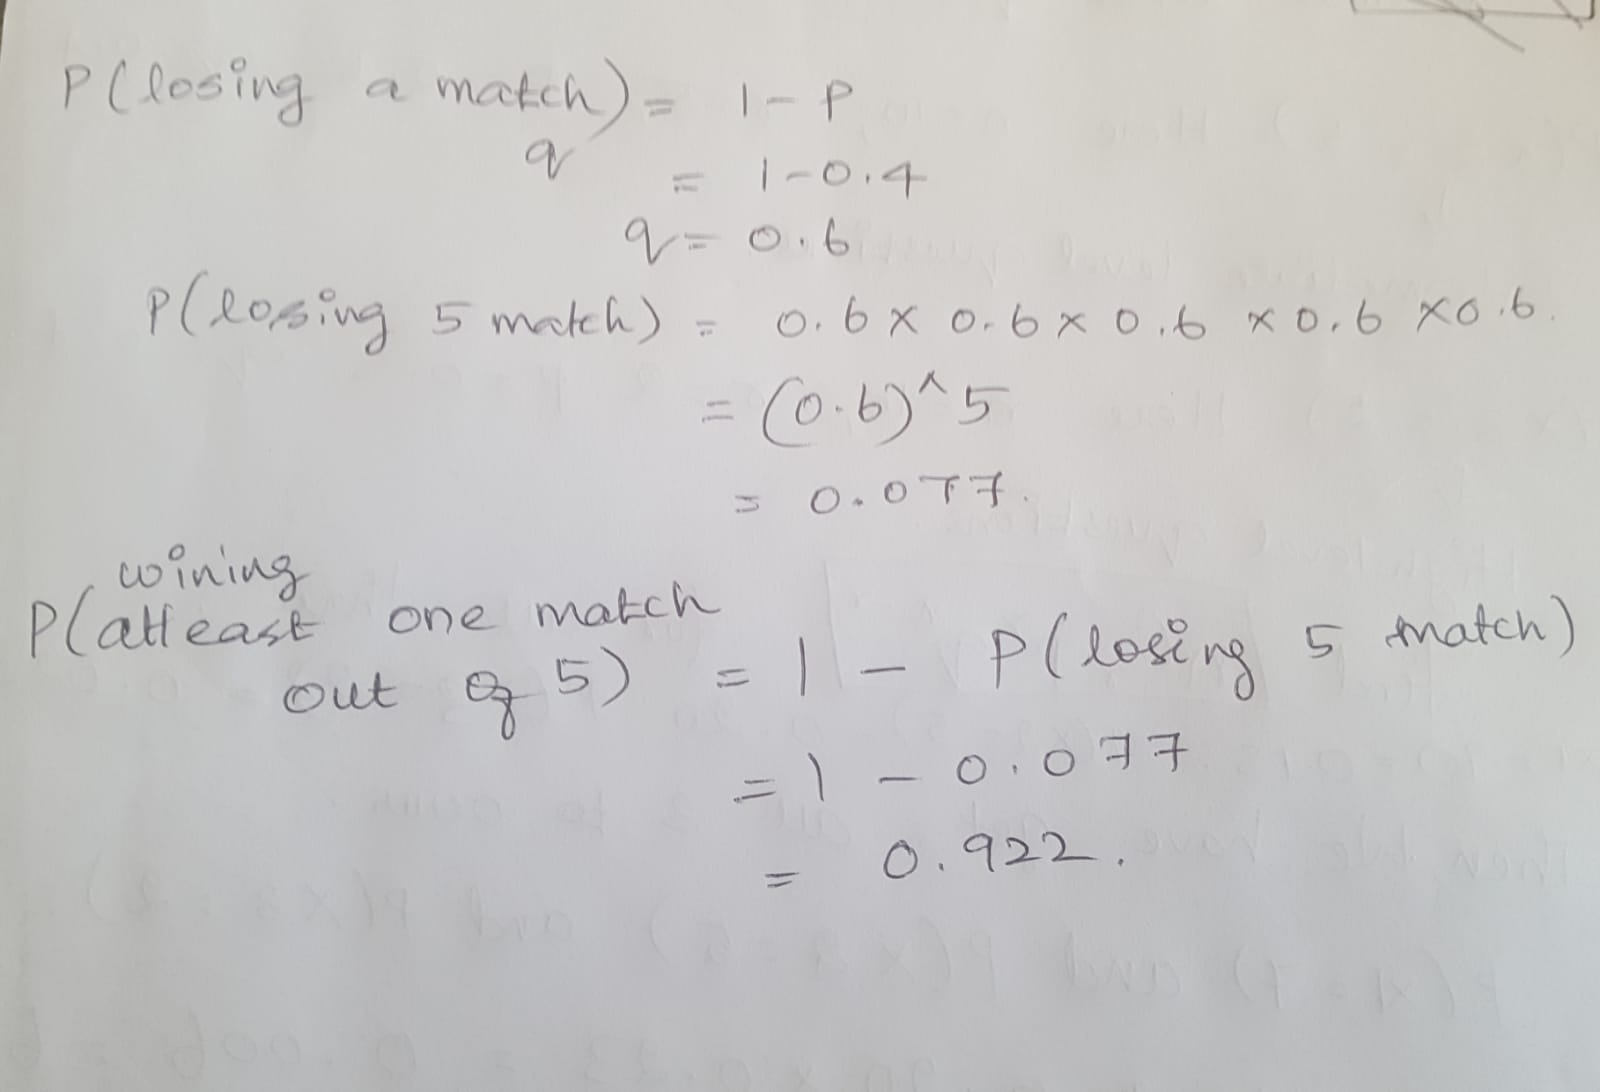 P(losing a match) = 1 - P
q
= 1-0.4
q = 0.6
P(losing 5 match) = 0.6 x 0.6 x 0.6 x 0.6 x 0.6.
= (0.6)^5
= 0.077.
wining
P(atleast one match
out of 5) = 1 - P(losing 5 match)
= 1 - 0.077
= 0.922.